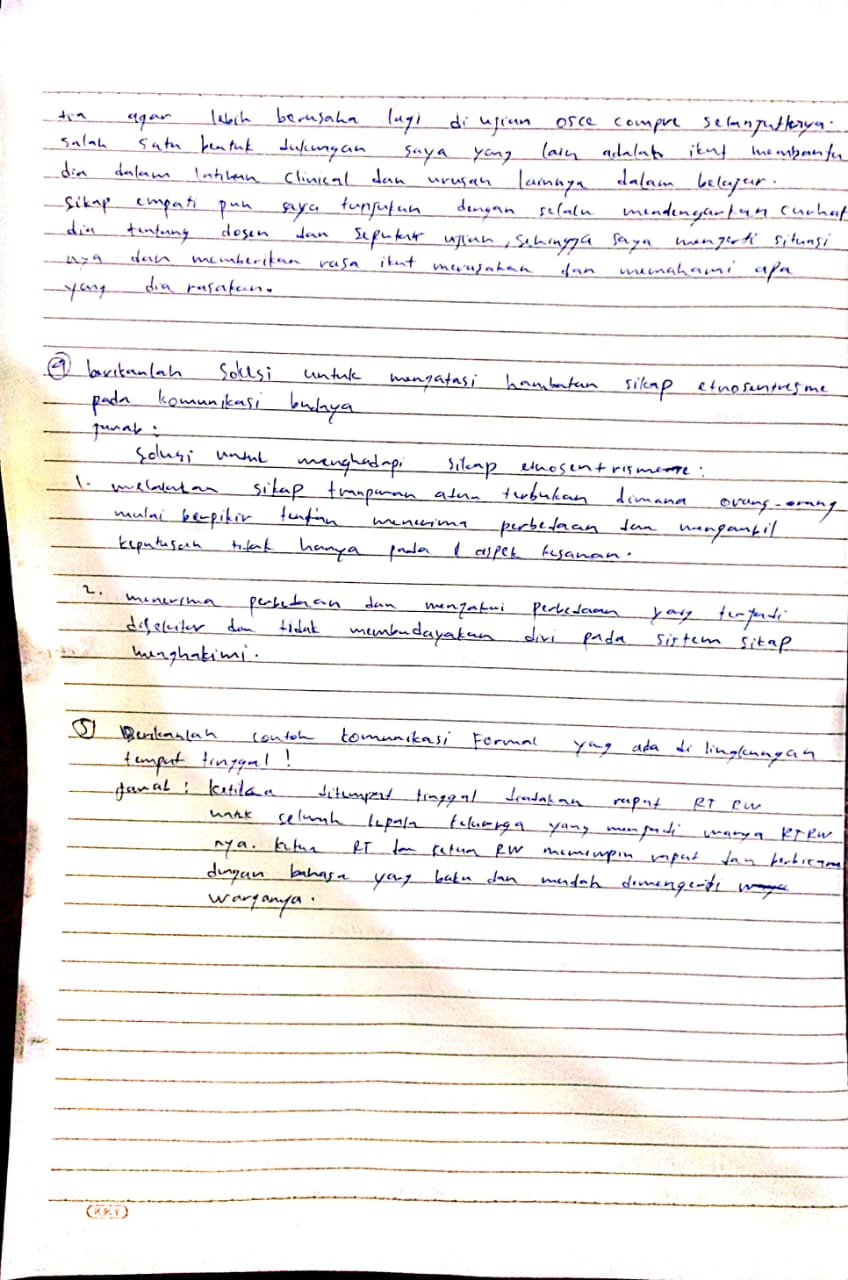 dia agar lebih berusaha lagi di ujian osce compre selanjutnya.
salah satu bentuk dukungan saya yang lain adalah ikut membantu
dia dalam latihan clinical dan urusan lainnya dalam belajar.
Sikap empati pun saya tunjukan dengan selalu mendengarkan curhat
dia tentang dosen dan seputar ujian, sehingga saya mengerti situasi
nya dan memberikan rasa ikut merasakan dan memahami apa
yang dia rasakan.
4 berikanlah Solusi untuk mengatasi hambatan sikap etnosentresme
pada komunikasi budaya
jawab :
Solusi untuk menghadapi sikap etnosentrisme :
1. melakukan sikap tranparan atau terbukan dimana orang-orang
mulai berpikir tentan menerima perbedaan dan mengambil
keputusan tidak hanya pada 1 aspek kesanan.
2. menerima perbedaan dan mengakui perbedaan yang terjadi
disekitar dan tidak membudayakan diri pada sistem sikap
menghakimi.
5 Berikanlah contoh komunikasi Formal yang ada di lingkungan
tempat tinggal !
jawab : ketika ditempat tinggal diadakan rapat RT RW
untuk seluruh kepala keluarga yang menjadi warga RT RW
nya. ketua RT dan ketua RW memimpin rapat dan berbicara
dengan bahasa yang baku dan mudah dimengerti
warganya.
KKY